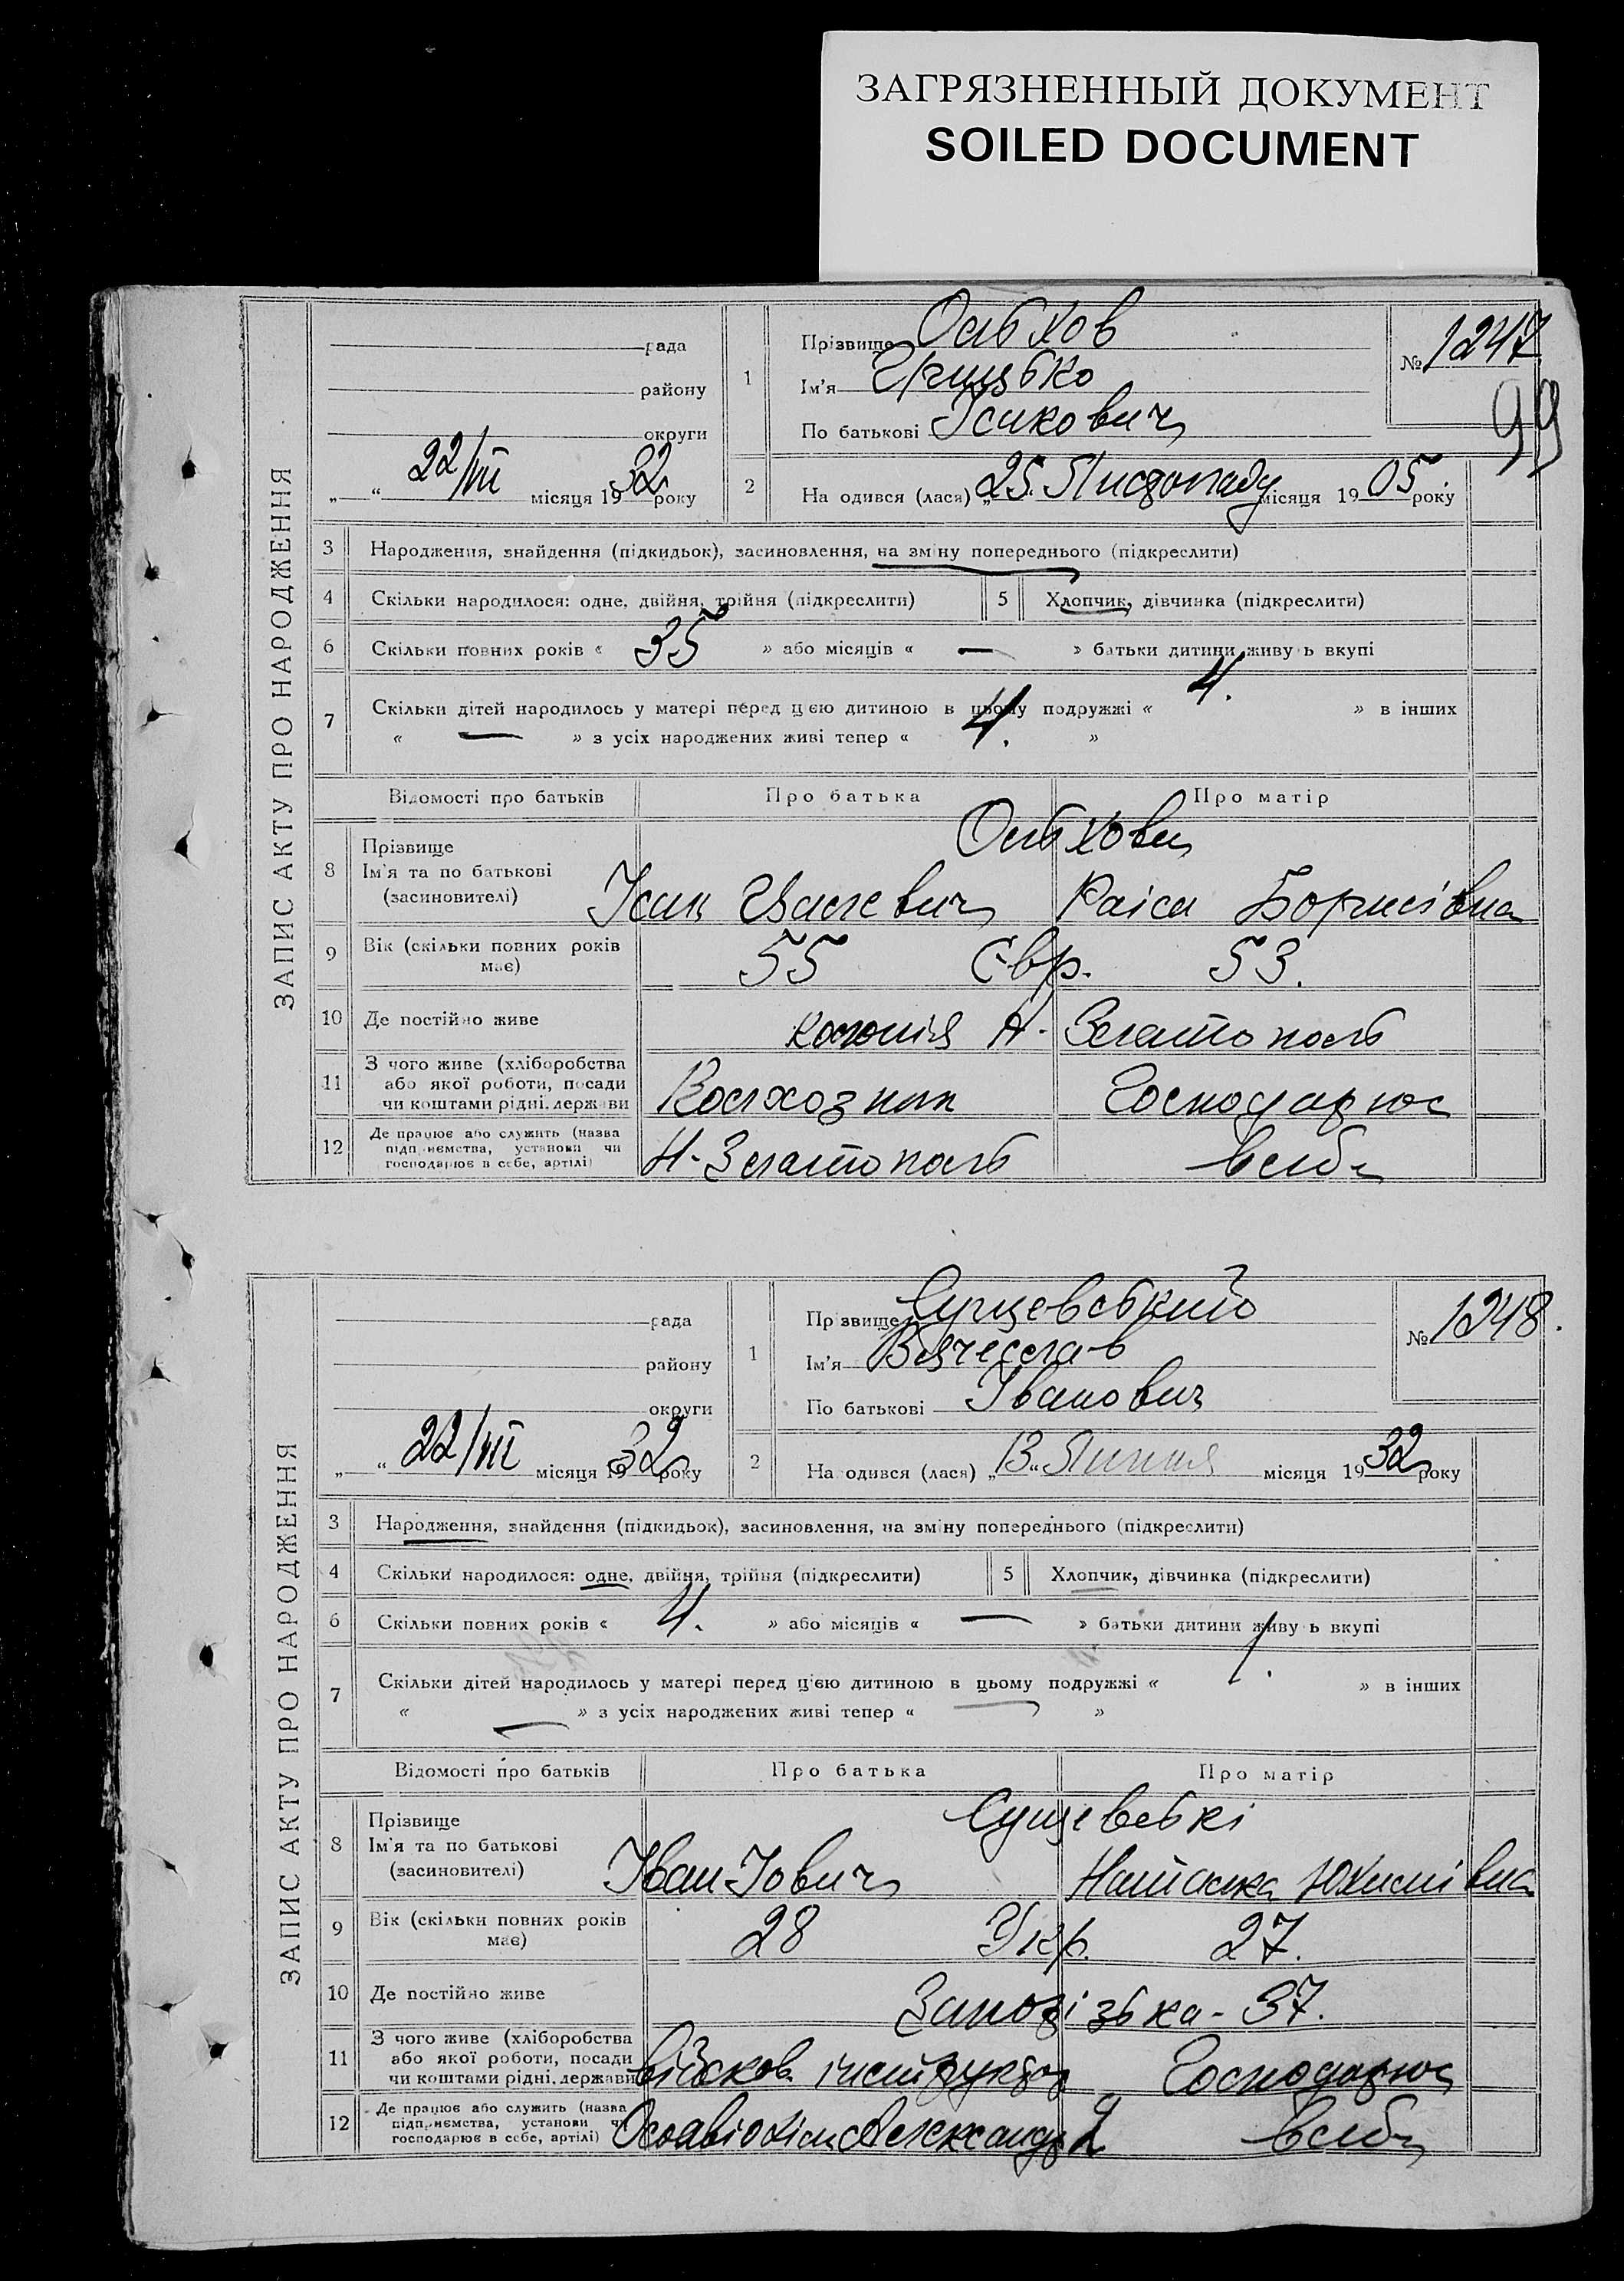 ЗАГРЯЗНЕННЫЙ ДОКУМЕНТ
SOILED DOCUMENT
ЗАПИС АКТУ ПРО НАРОДЖЕННЯ
рада
району
округи
„ “ 22/VII місяця 1932 року
1
Прізвище
Ім'я Грицько
По батькові Ісакович
№ 1247
99
2
На одився (лася) „25. Листопаду місяця 1905 року
3 Народження, знайдення (підкидьок), засиновлення, на зміну попереднього (підкреслити)
4 Скільки народилося: одне, двійня, трійня (підкреслити)
5 Хлопчик, дівчинка (підкреслити)
6 Скільки повних років « 35 » або місяців « — » батьки дитини живу ь вкупі
7 Скільки дітей народилось у матері перед цією дитиною в цьому подружжі « 4. » в інших
« — » з усіх народжених живі тепер « 4. »
Відомості про батьків Про батька Про матір
8 Прізвище
Ім'я та по батькові
(засиновителі)
Ісак Раіса Борисівна
9 Вік (скільки повних років
має)
55 Євр. 53.
10 Де постійно живе колонія Н- Златополь
11 З чого живе (хліборобства
або якої роботи, посади
чи коштами рідні, держави
Колхозник Господарює
12 Де працює або служить (назва
підприємства, установи чи
господарює в себе, артілі)
Н-Златополь в себе
ЗАПИС АКТУ ПРО НАРОДЖЕННЯ
рада
району
округи
„ “ 22/VII місяця 1932 року
1
Пр звище Сущевський
Ім'я Вячеслав
По батькові Іванович
№ 1248.
2
На одився (лася) „13“ Липня місяця 1932 року
3 Народження, знайдення (підкидьок), засиновлення, на зміну попереднього (підкреслити)
4 Скільки народилося: одне, двійня, трійня (підкреслити)
5 Хлопчик, дівчинка (підкреслити)
6 Скільки повних років « 4. » або місяців « — » батьки дитини живу ь вкупі
7 Скільки дітей народилось у матері перед цією дитиною в цьому подружжі « 1. » в інших
« — » з усіх народжених живі тепер « — »
Відомості про батьків Про батька Про матір
8 Прізвище
Ім'я та по батькові
(засиновителі)
Сущевські
Іван Іович Наталка Юхимівна
9 Вік (скільки повних років
має)
28 Укр. 27.
10 Де постійно живе - 37.
11 З чого живе (хліборобства
або якої роботи, посади
чи коштами рідні, держави
військов. інструктор Господарює
12 Де працює або служить (назва
підприємства, установи чи
господарює в себе, артілі)
Осоавіохім в себе